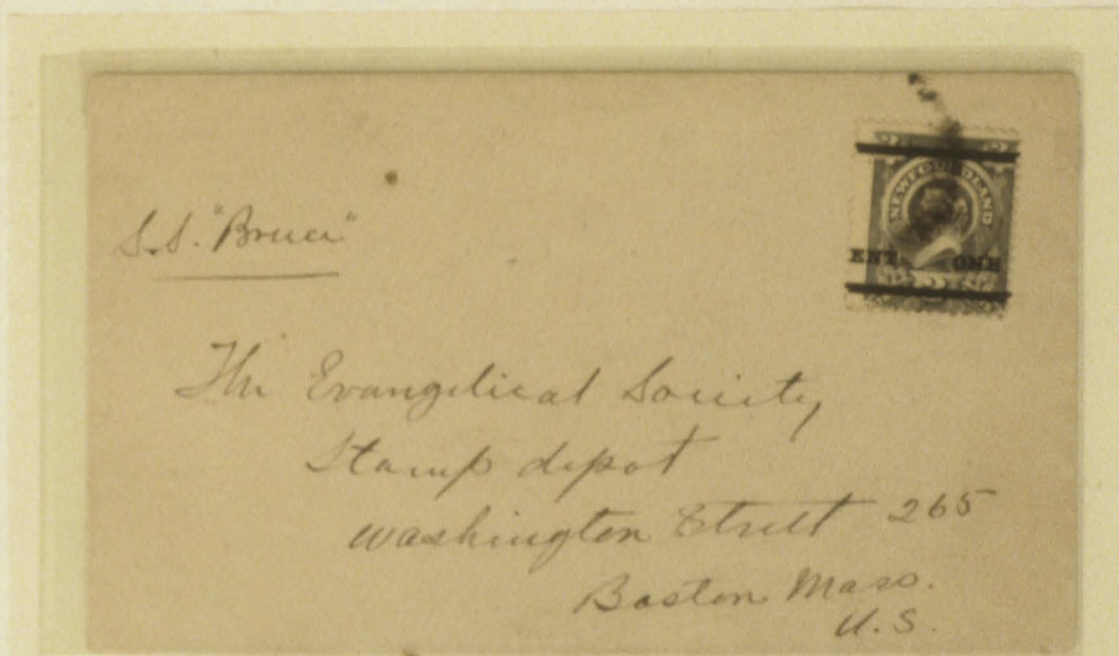 NEWFOUNDLAND
ENT ONE
S.S. "Bruce"
The Evangelical Society
Stamp depot
Washington Street 265
Boston Mass.
U.S.